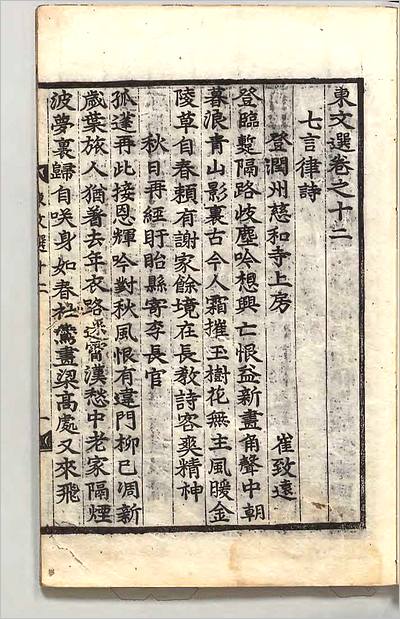 東文選卷之十二
七言律詩
登潤州慈和寺上房 崔致遠
登臨蹔隔路歧塵吟想興亡恨益新畫角聲中朝
暮浪青山影裏古今人霜摧玉樹花無主風暖金
陵草自春賴有謝家餘境在長教詩客爽精神
秋日再經盱眙縣寄李長官
孤蓬再此接恩輝吟對秋風恨有違門柳已凋新
歲葉旅人猶着去年衣路迷霄漢愁中老家隔煙
波夢裏歸自咲身如春社鷰畫梁高處又來飛
東文選十二 一